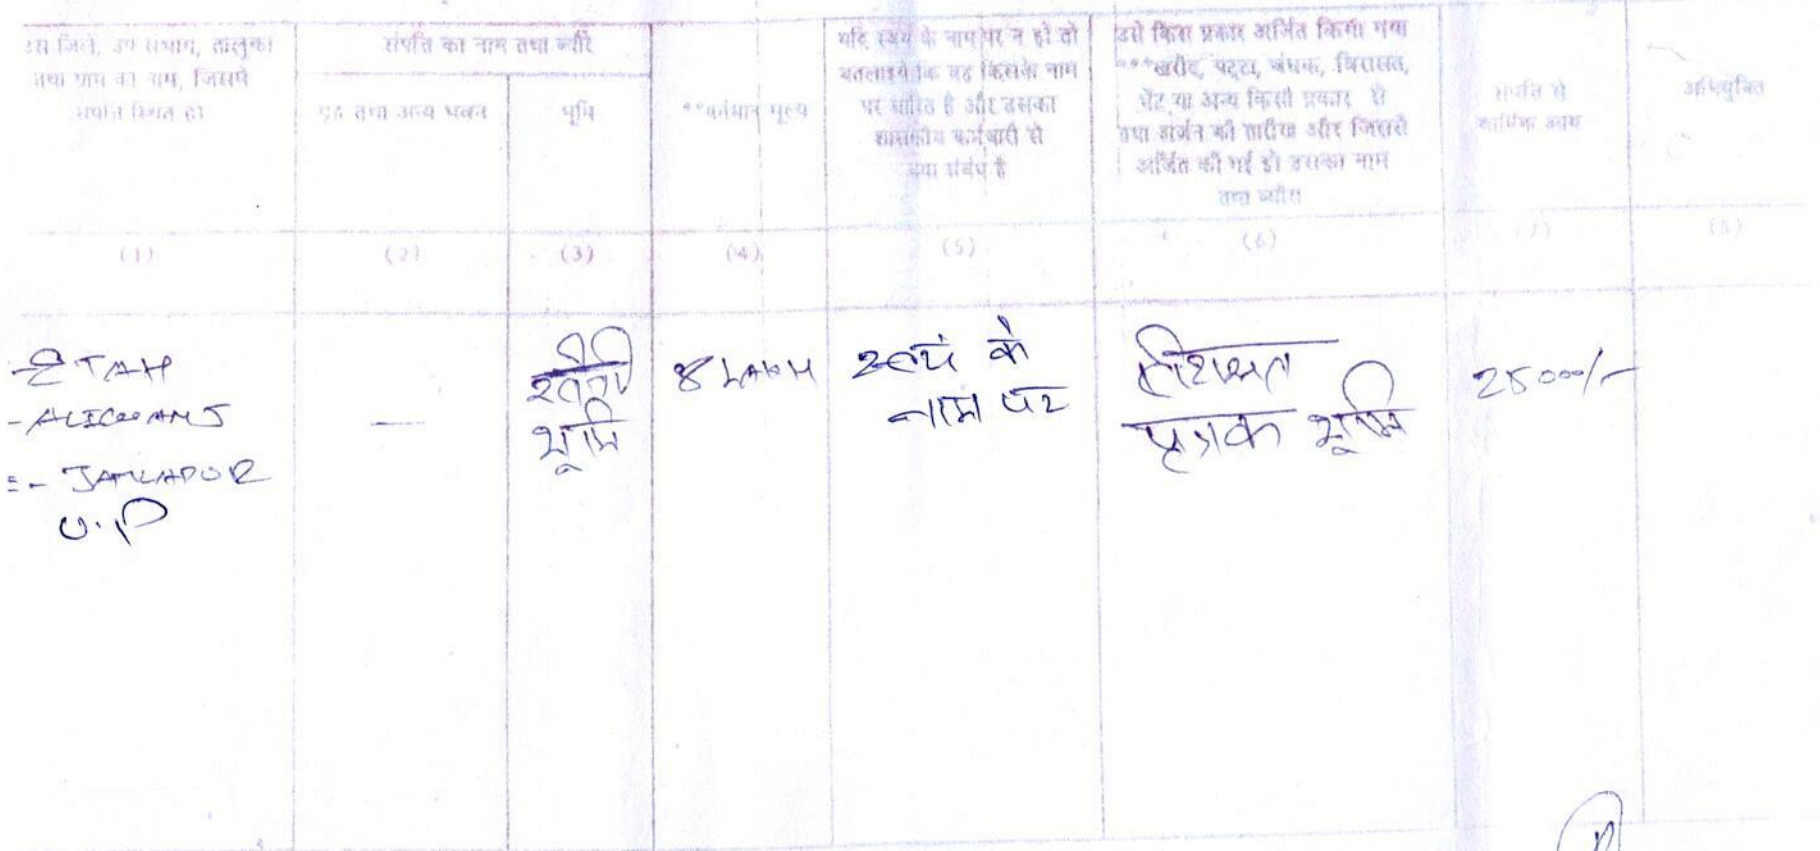 उस जिले, उप संभाग, तालुका
तथा ग्राम का नाम, जिसमें
संपत्ति स्थित हो
संपत्ति का नाम तथा ब्यौरे
गृह तथा अन्य भवन
भूमि
**वर्तमान मूल्य
यदि स्वयं के नाम पर न हो तो
बतलाइये कि वह किसके नाम
पर धारित है और उसका
शासकीय कर्मचारी से
क्या संबंध है
उसे किस प्रकार अर्जित किया गया
***खरीद, पट्टा, बंधक, विरासत,
भेंट या अन्य किसी प्रकार से
तथा अर्जन की तारीख और जिससे
अर्जित की गई हो उसका नाम
तथा ब्यौरा
संपत्ति से
वार्षिक आय
अभियुक्ति
(1)
(2)
(3)
(4)
(5)
(6)
(7)
(8)
- ETAH
- ALIGANJ
:- 
U.P
—
खेती
भूमि
8 LAKH
स्वयं के
नाम पर
भूमि
25000/-